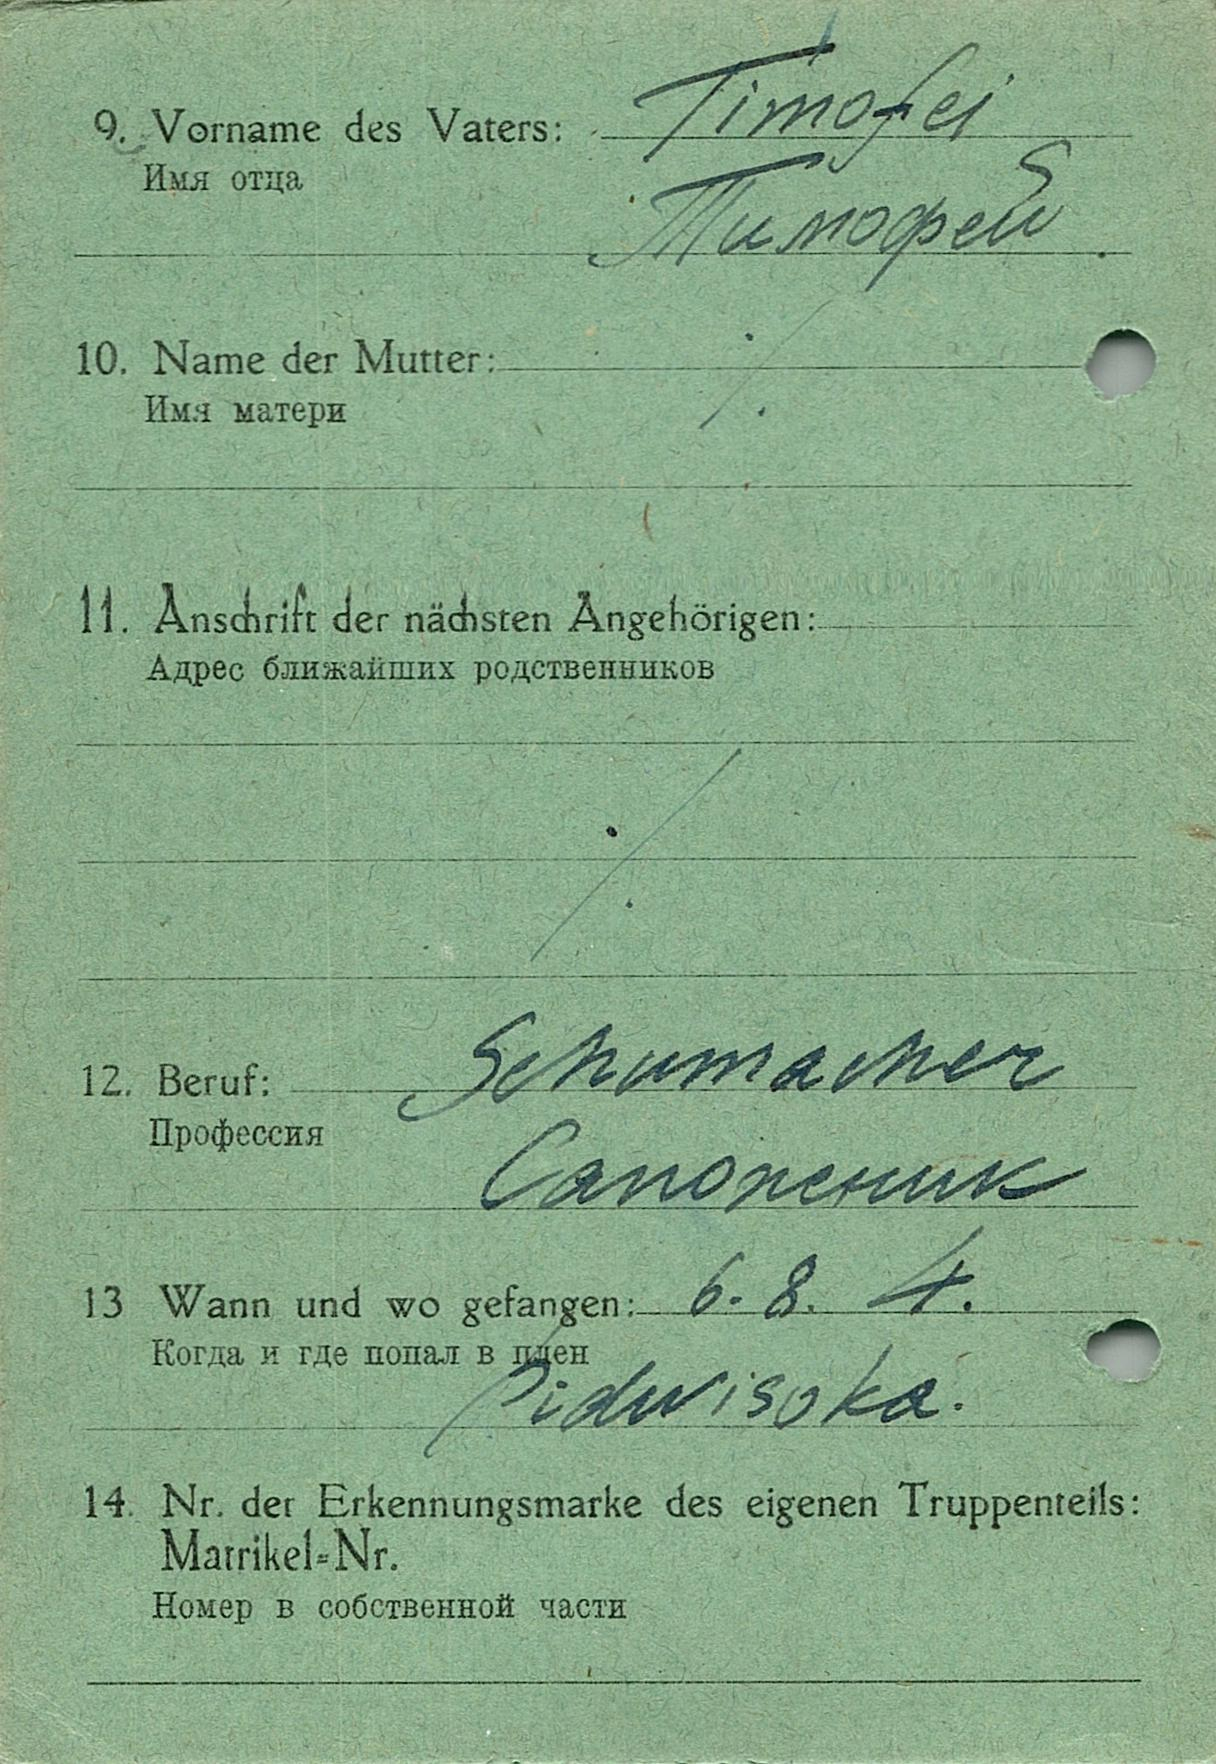 9. Vorname des Vaters: Timofei
Имя отца
Тимофей.
10. Name der Mutter: ·/.
Имя матери
11. Anschrift der nächsten Angehörigen:
Адрес ближайших родственников
·/.
12. Beruf: Schumacher
Профессия
Сапожник
13 Wann und wo gefangen: 6. 8. 4.
Когда и где попал в плен
Pidwisoka.
14. Nr. der Erkennungsmarke des eigenen Truppenteils:
Matrikel=Nr.
Номер в собственной части